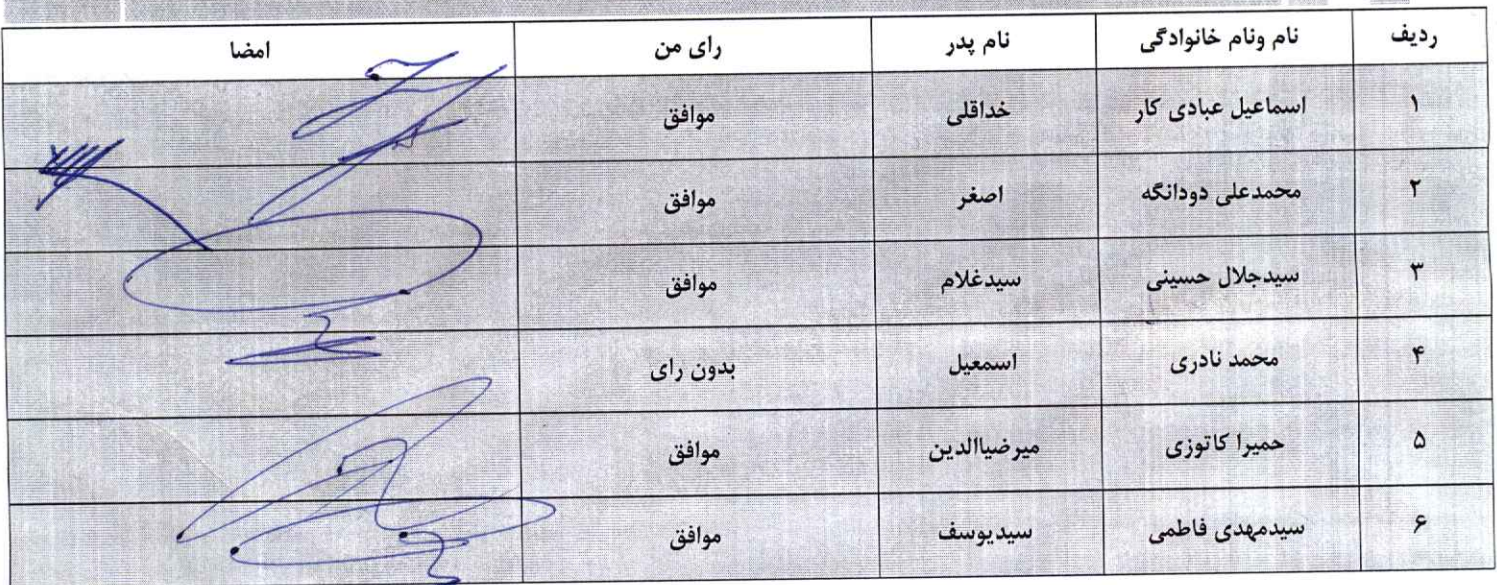 ردیف نام ونام خانوادگی نام پدر رای من امضا
۱ اسماعیل عبادی کار خداقلی موافق
۲ محمدعلی دودانگه اصغر موافق
۳ سیدجلال حسینی سیدغلام موافق
۴ محمد نادری اسمعیل بدون رای
۵ حمیرا کاتوزی میرضیاالدین موافق
۶ سیدمهدی فاطمی سیدیوسف موافق